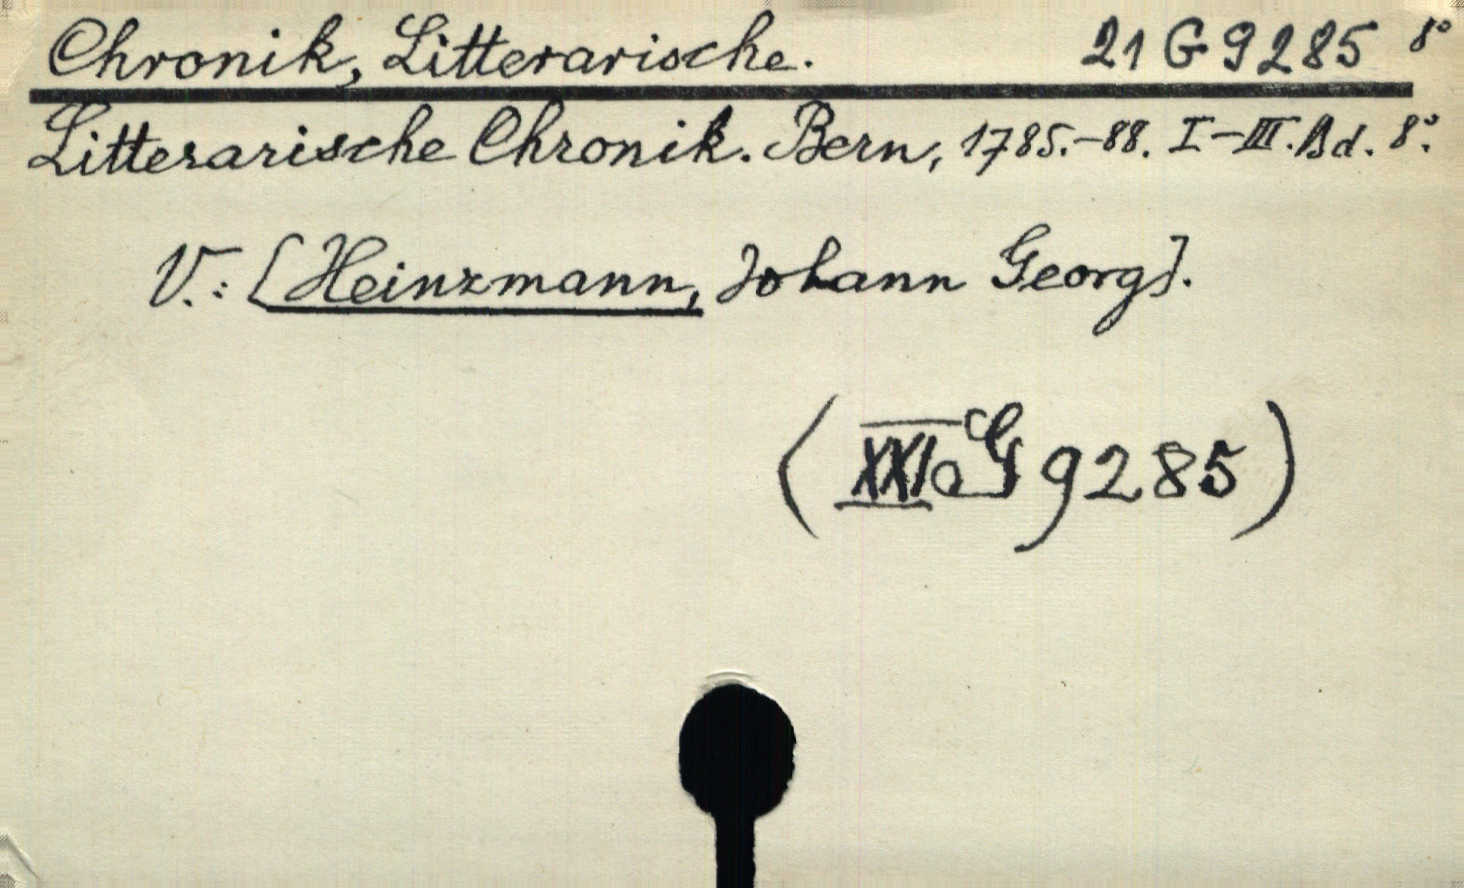 Chronik, Litterarische. 21 G 9285 8°
Litterarische Chronik. Bern, 1785.-88. I-III. Bd. 8°.
V.: [Heinzmann, Johann Georg].
(XXI G 9285)